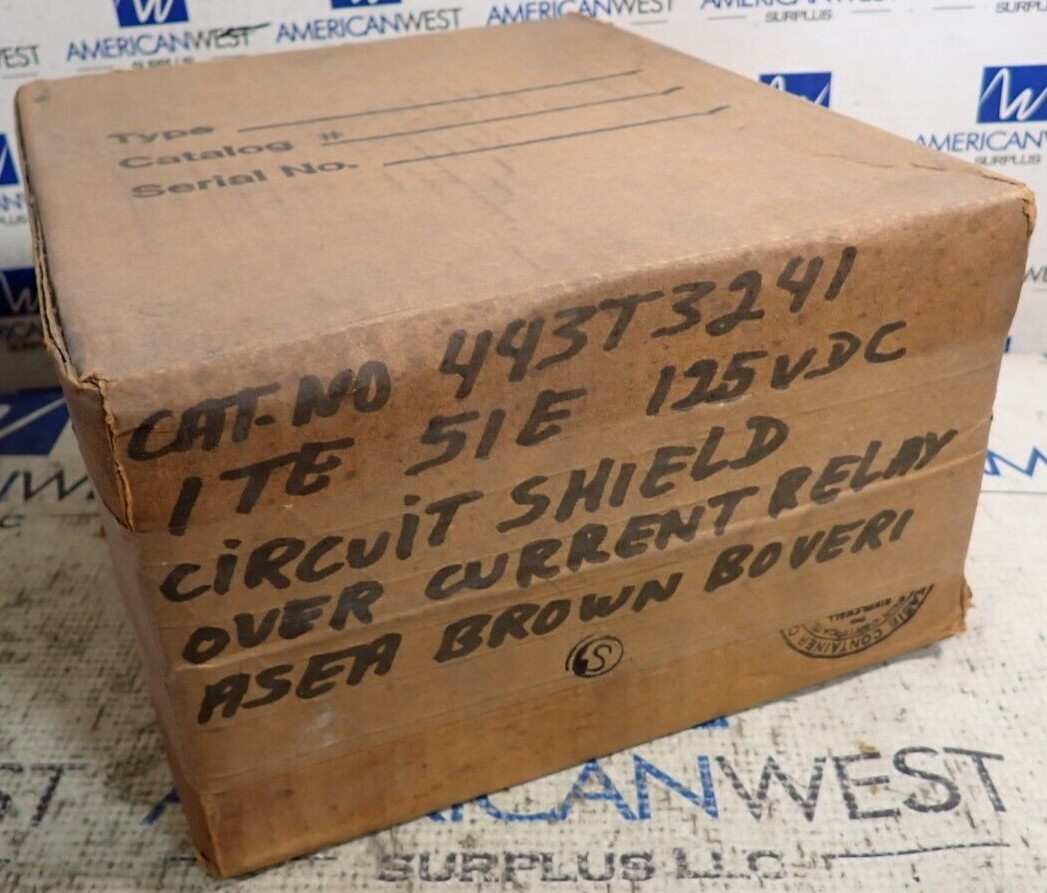 AMERICANWEST
SURPLUS
AMERICANWEST
SURPLUS
Type
Catalog #
Serial No.
CAT. NO 443T3241
ITE 51E 125VDC
CIRCUIT SHIELD
OVER CURRENT RELAY
ASEA BROWN BOVERI
S
CONTAINER
AMERICANWEST
SURPLUS LLC